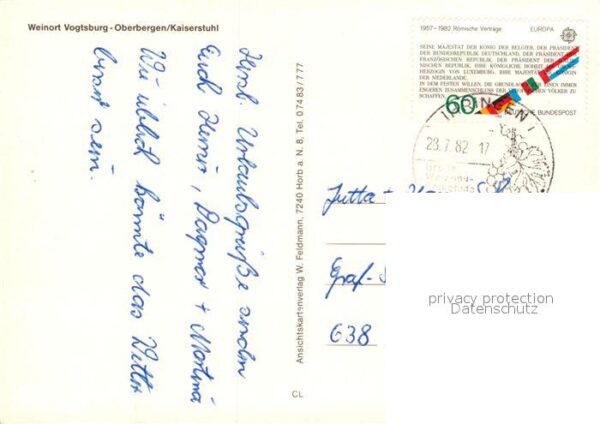 Weinort Vogtsburg - Oberbergen/Kaiserstuhl
1957–1982 Römische Verträge EUROPA
SEINE MAJESTÄT DER KÖNIG DER BELGIER, DER PRÄSIDENT
DER BUNDESREPUBLIK DEUTSCHLAND, DER PRÄSIDENT DER
FRANZÖSISCHEN REPUBLIK, DER PRÄSIDENT DER
NISCHEN REPUBLIK, IHRE KÖNIGLICHE HOHEIT
HERZOGIN VON LUXEMBURG, IHRE MAJESTÄT
DER NIEDERLANDE,
IN DEM FESTEN WILLEN, DIE GRUNDLAGEN EINEN IMMER
ENGEREN ZUSAMMENSCHLUSS DER VÖLKER ZU
SCHAFFEN
60
DEUTSCHE BUNDESPOST
IHRINGEN 1
23.7.82 17
Herzl. Urlaubsgrüße senden
Euch Heinr., Dagmar + Martina
Wie üblich könnte das Wetter
besser sein.
Ansichtskartenverlag W. Feldmann, 7240 Horb a. N. 8, Tel. 0 74 83 / 7 77
CL
Jutta +
Graf-
638
privacy protection
Datenschutz